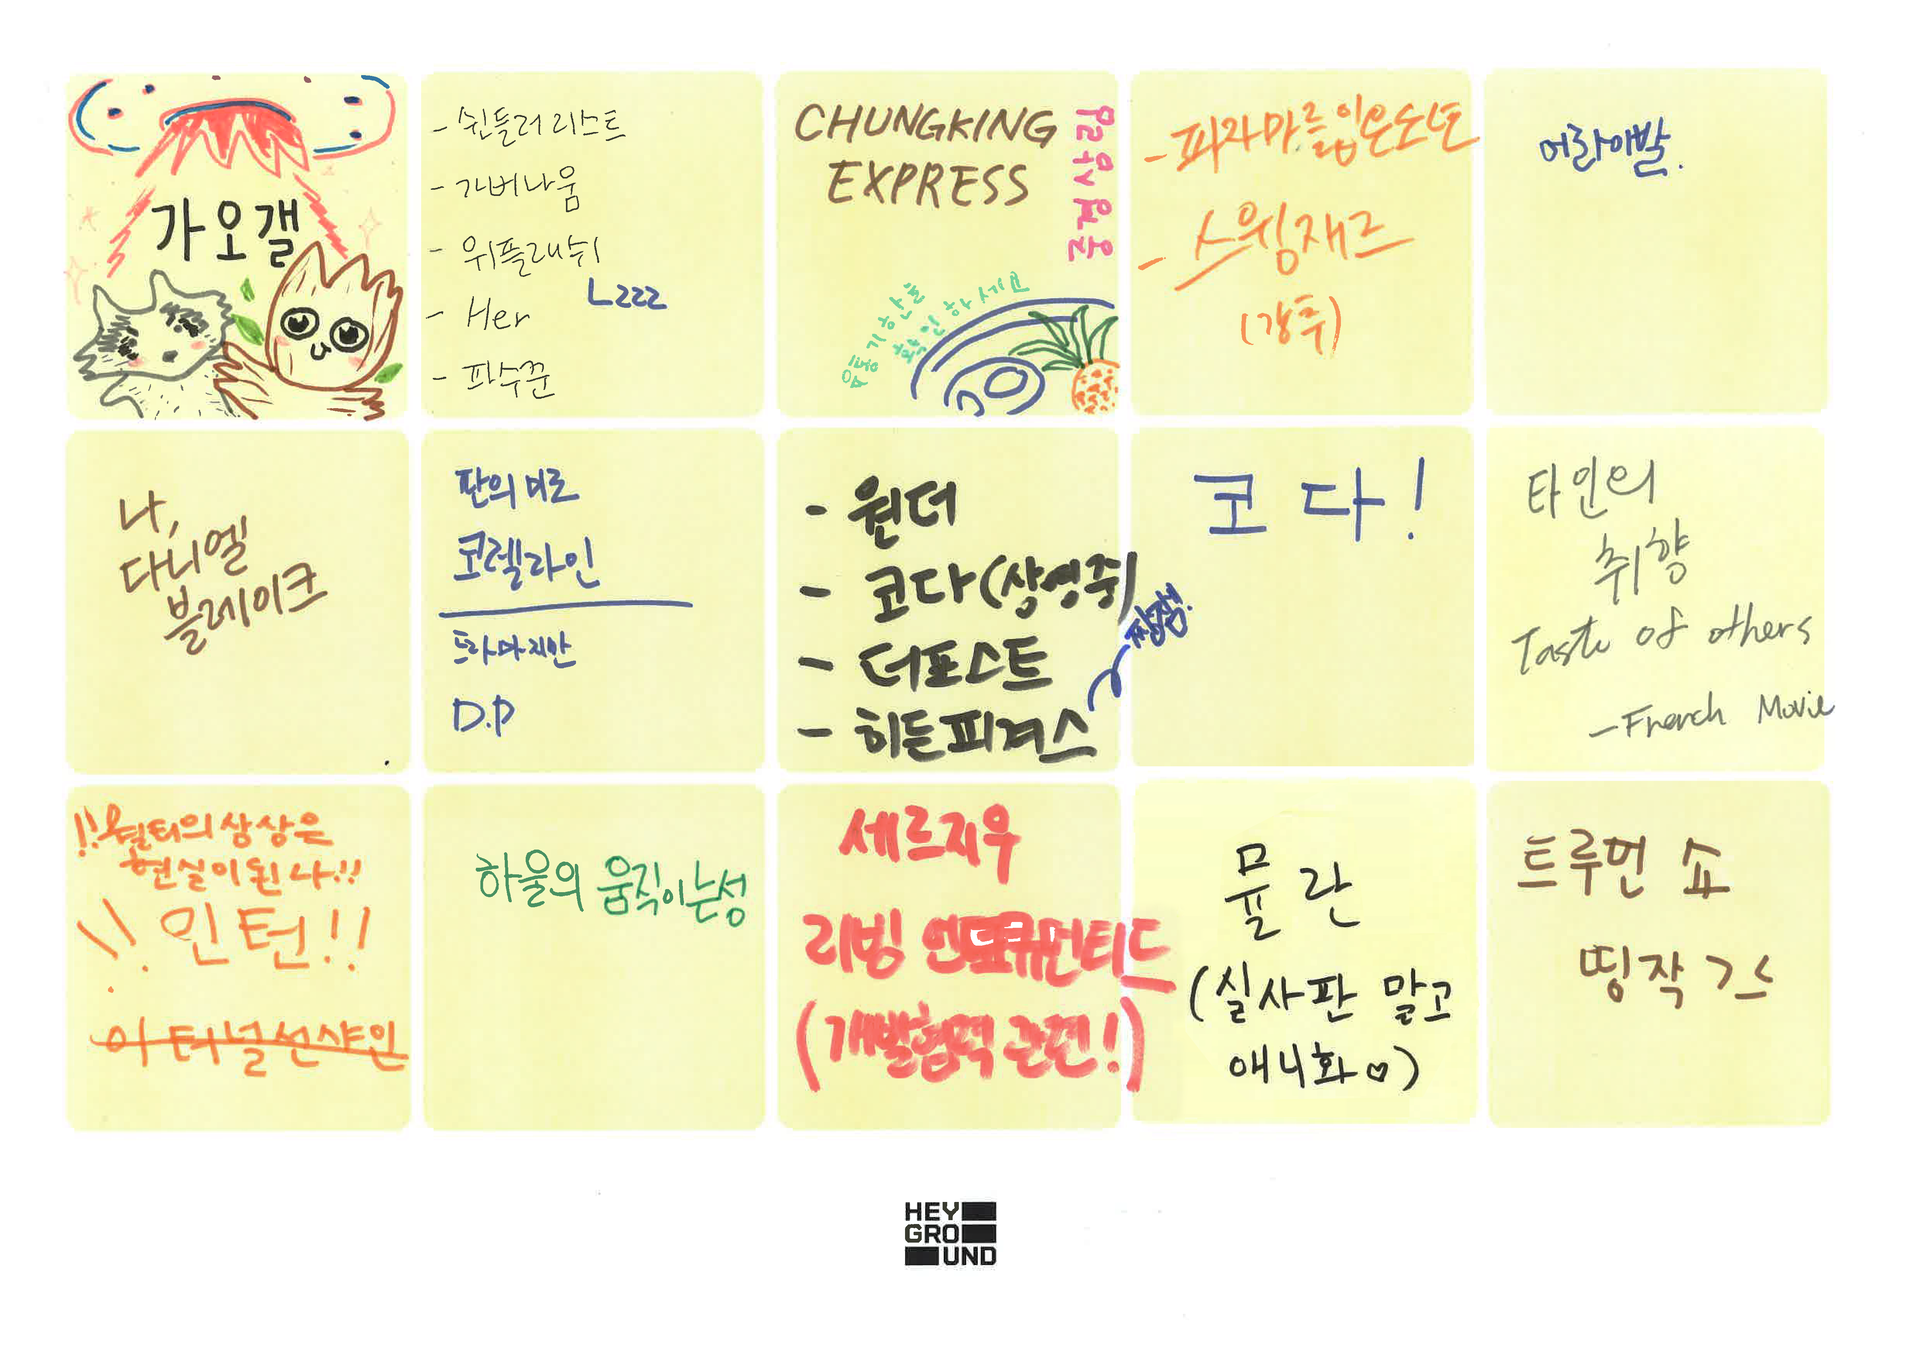 가오갤
- 쉰들러 리스트
- 가버나움
- 위플래쉬
LZZZ
- Her
- 파수꾼
CHUNGKING
EXPRESS
유통기한을
확인하세요
- 피자마를입은소년
- 스윙재즈
(강추)
어라이발.
나,
다니엘
블레이크
판의 미로
코렐라인
드라마지만
D.P
- 원더
- 코다(상영중)
- 더포스트
- 히든피겨스
코다!
타인의
취향
Taste of others
- French Movie
!!월터의 상상은
현실이 된다!!
\\ 인턴!!
이터널선샤인
하울의 움직이는성
세르지우
리빙
(개발협력 관련!)
뮬란
(실사판 말고
애니화♡)
트루먼 쇼
띵작 ㄱㅅ
HEY
GRO
UND